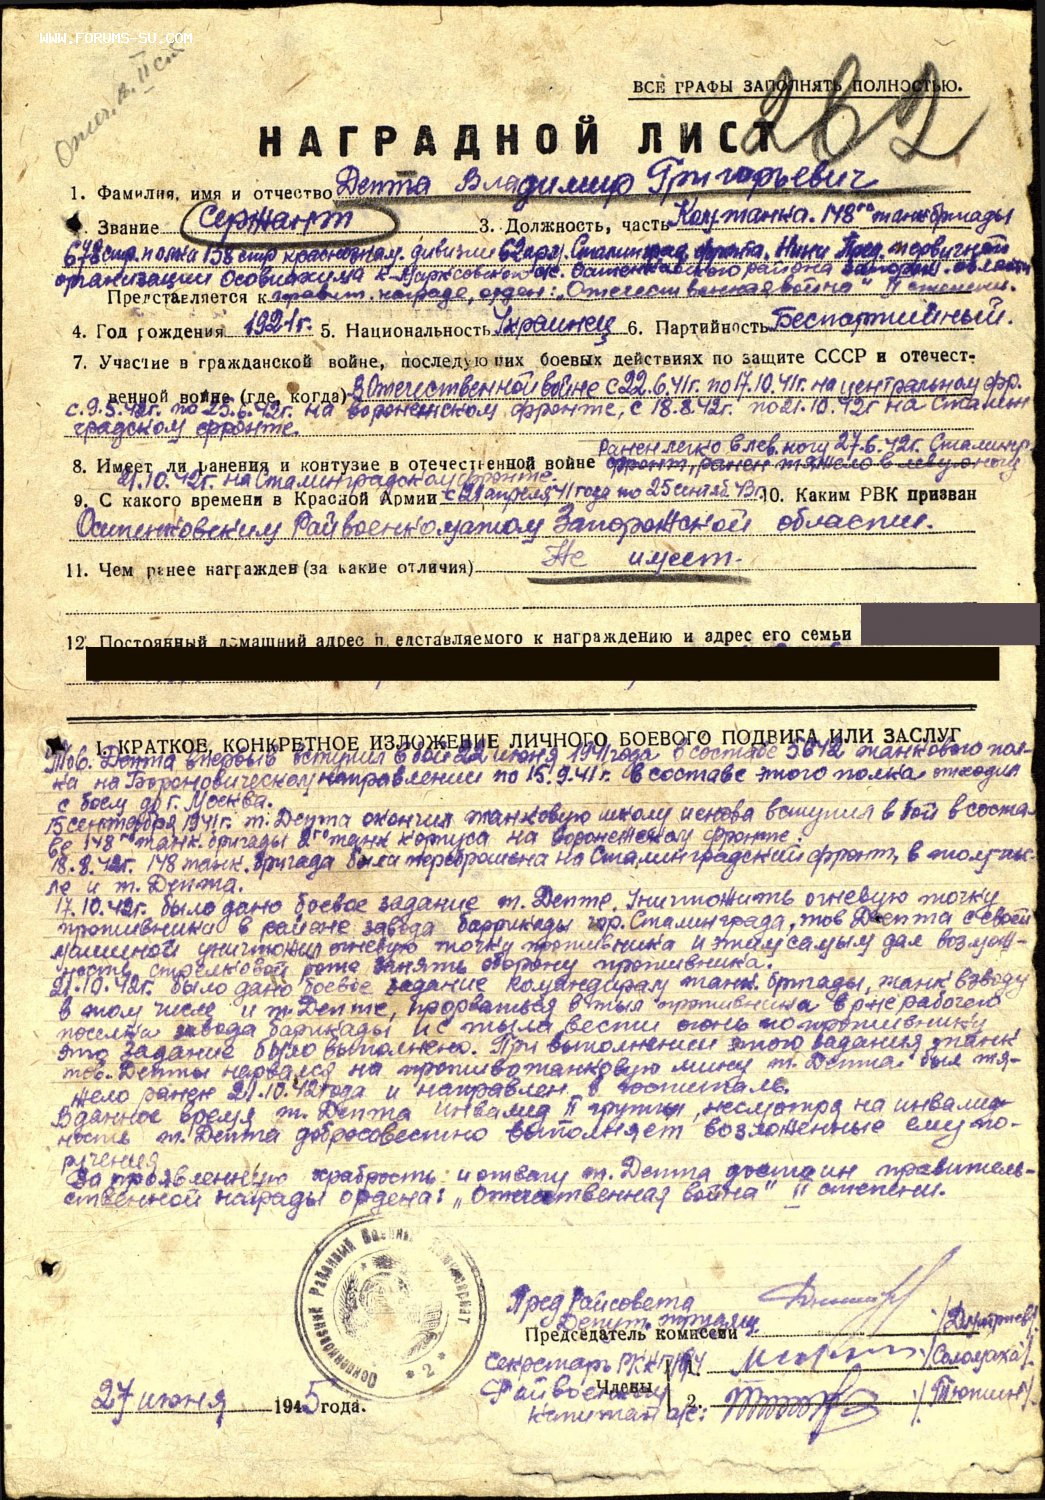 WWW.FORUMS-SU.COM
Отеч. в. II ст
262
ВСЕ ГРАФЫ ЗАПОЛНЯТЬ ПОЛНОСТЬЮ.
НАГРАДНОЙ ЛИСТ
1. Фамилия, имя и отчество Депта Владимир Григорьевич
Звание Сержант 3. Должность, часть Ком. танка. 148го танк бригады
678 стр. полка 138 стр краснознам. дивизии 62 арм. Сталинград. фронта. Ныне Пред. первичной
организации Осовиахима Осипенковского района Запорож. области
Представляется к правит. награде, орден: „Отечественная война" II степени.
4. Год рождения 1921г. 5. Национальность Украинец 6. Партийность Беспартийный.
7. Участие в гражданской войне, последующих боевых действиях по защите СССР и отечест-
венной войне (где, когда) В Отечественной войне с 22.6.41г. по 17.10.41г. на центральном фр.
с 9.5.42г. по 25.6.42г. на воронежском фронте, с 18.8.42г. по 21.10.42г на Сталин
градском фронте.
Ранен легко в лев. ногу 27.6.42г. Сталингр
8. Имеет ли ранения и контузие в отечественной войне фронт, ранен тяжело в левую ногу
21.10.42г. на Сталинградском фронте.
9. С какого времени в Красной Армии с 21 апреля 41 года по 25 сентяб 43г. 10. Каким РВК призван
Осипенковским Райвоенкоматом Запорожской области.
11. Чем ранее награжден (за какие отличия) Не имеет.
12. Постоянный домашний адрес представляемого к награждению и адрес его семьи
I. КРАТКОЕ, КОНКРЕТНОЕ ИЗЛОЖЕНИЕ ЛИЧНОГО БОЕВОГО ПОДВИГА ИЛИ ЗАСЛУГ
Тов. Депта впервые вступил в бой 22 июня 1941 года в составе 5642 танкового пол-
ка на Бороновическом направлении по 15.9.41г. в составе этого полка отходил
с боем до г. Москва.
15 сентября 1941г. т. Депта окончил танковую школу и снова вступил в бой в соста-
ве 148го танк. бригады 2го танк корпуса на воронежском фронте.
18.8.42г. 148 танк. бригада была переброшена на Сталинградский фронт, в том чис-
ле и т. Депта.
17.10.42г. было дано боевое задание т. Депте. Уничтожить огневую точку
противника в районе завода баррикады гор. Сталинграда, тов Депта с своей
машиной уничтожил огневую точку противника и этим самым дал возмож-
ность стрелковой роте занять оборону противника.
21.10.42г. было дано боевое задание командирам танк. бригады, танк взводу
в том числе и т. Депте, прорваться в тыл противника в р-не рабочего
поселка завода барикады и с тыла вести огонь по противнику
это задание было выполнено. При выполнении этого задания танк
тов. Депты нарвался на противотанковую мину т. Депта был тя-
жело ранен 21.10.42 года и направлен в госпиталь.
В данное время т. Депта инвалид II группы, несмотря на инвалид-
ность т. Депта добросовестно выполняет возложенные ему по-
ручения
За проявленную храбрость и отвагу т. Депта достоин правитель-
ственной награды ордена: „Отечественная война" II степени.
Осипенковский Районный Военный Комиссариат * 2 *
Пред Райсовета
Депут. трудящ.
Председатель комиссии /Дмитриев/
Секретарь РК КП/б/У 1. /Соломаха/
Члены
Райвоенком 2. /Тюпин/
капитан а/с:
27 июня 1945 года.